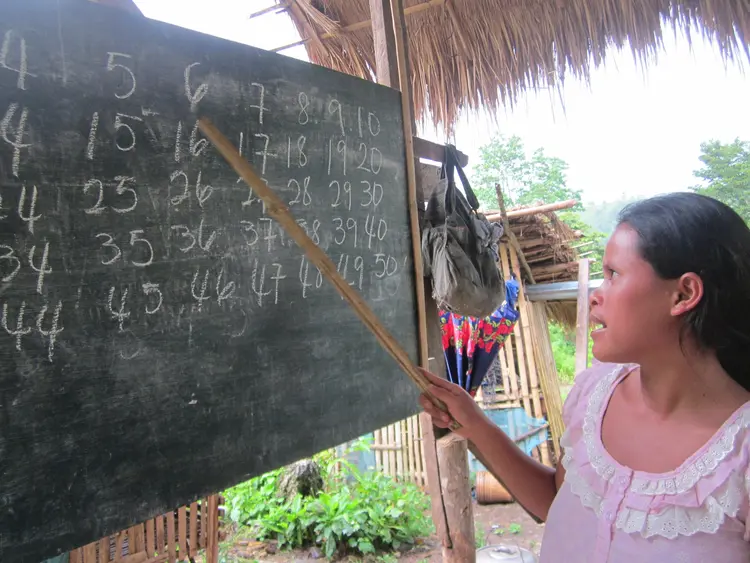 4 5 6 7 8 9 10
14 15 16 17 18 19 20
24 25 26 27 28 29 30
34 35 36 37 38 39 40
44 45 46 47 48 49 50